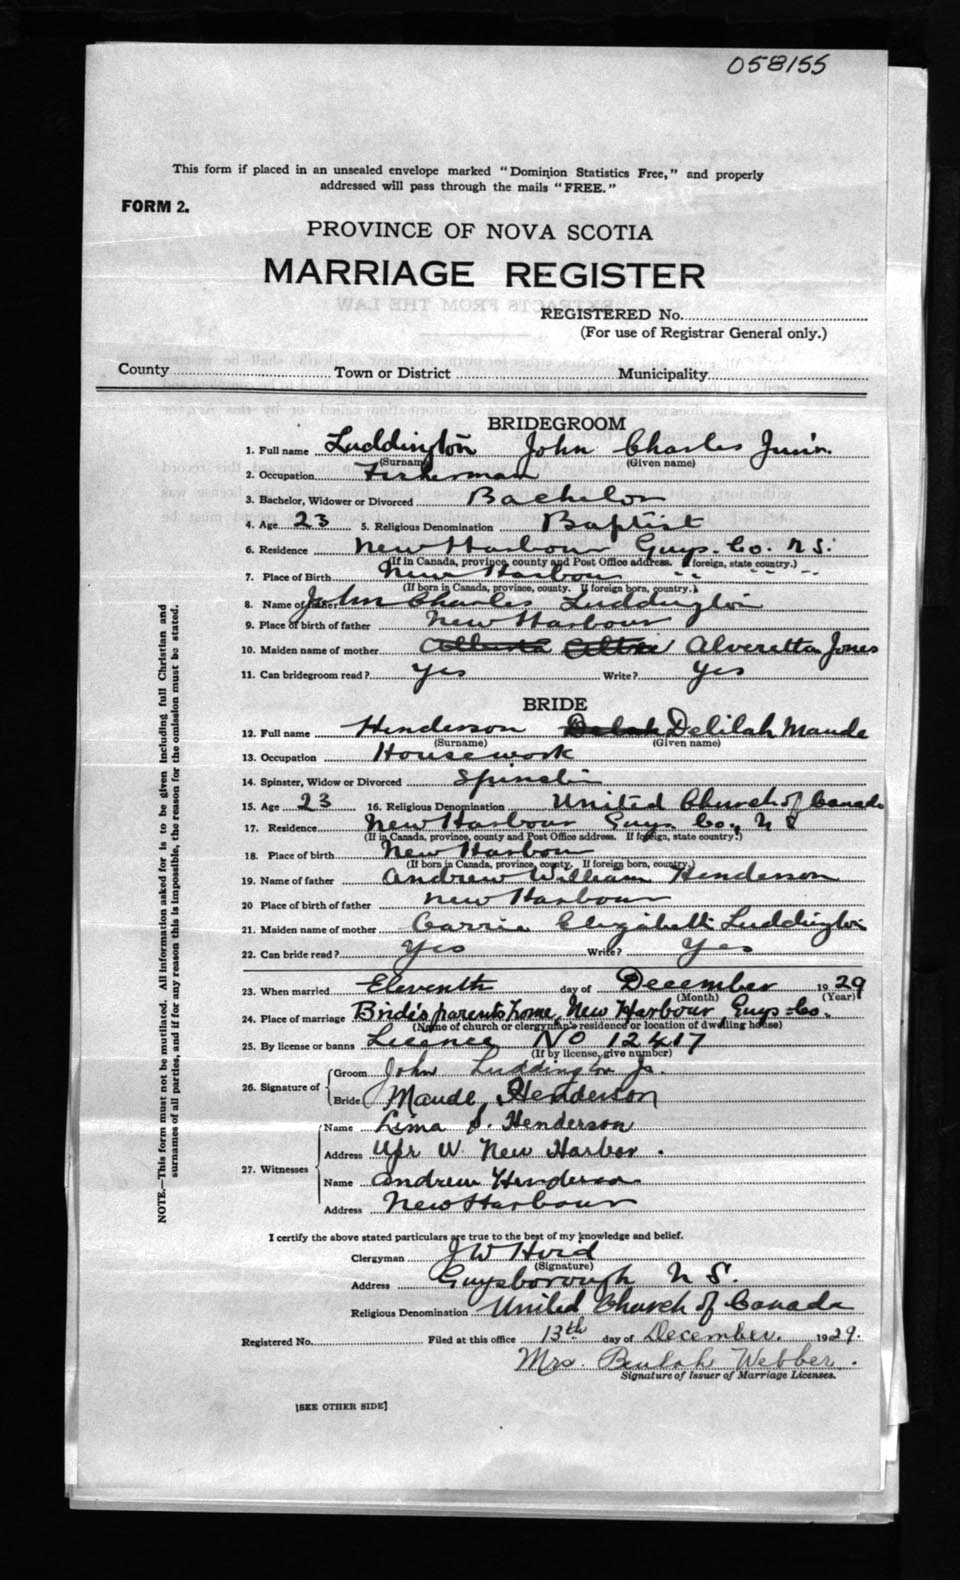 058155
This form if placed in an unsealed envelope marked "Dominion Statistics Free," and properly
addressed will pass through the mails "FREE."
FORM 2.
PROVINCE OF NOVA SCOTIA
MARRIAGE REGISTER
REGISTERED No.
(For use of Registrar General only.)
County Town or District Municipality
BRIDEGROOM
1. Full name Luddington John Charles Junior
(Surname) (Given name)
2. Occupation Fisherman
3. Bachelor, Widower or Divorced Bachelor
4. Age 23 5. Religious Denomination Baptist
6. Residence New Harbour Guys. Co. N.S.
(If in Canada, province, county and Post Office address. If foreign, state country.)
7. Place of Birth New Harbour " " "
(If born in Canada, province, county. If foreign born, country.)
8. Name of father John Charles Luddington
9. Place of birth of father New Harbour
10. Maiden name of mother Alveretta Jones
11. Can bridegroom read? Yes Write? Yes
BRIDE
12. Full name Henderson Delilah Maude
(Surname) (Given name)
13. Occupation Housework
14. Spinster, Widow or Divorced Spinster
15. Age 23 16. Religious Denomination United Church of Canada
17. Residence New Harbour Guys Co., N S
(If in Canada, province, county and Post Office address. If foreign, state country.)
18. Place of birth New Harbour
(If born in Canada, province, county. If foreign born, country.)
19. Name of father Andrew William Henderson
20 Place of birth of father New Harbour
21. Maiden name of mother Carrie Elizabeth Luddington
22. Can bride read? Yes Write? Yes
23. When married Eleventh day of December 1929
(Month) (Year)
24. Place of marriage Bride's parent's home, New Harbour, Guys-Co.
(Name of church or clergyman's residence or location of dwelling house)
25. By license or banns Licence No 12417
(If by license, give number)
26. Signature of Groom John Luddington Jr.
Bride Maude Henderson
27. Witnesses Name Lima S. Henderson
Address Upr W. New Harbor.
Name Andrew Henderson
Address New Harbour
I certify the above stated particulars are true to the best of my knowledge and belief.
Clergyman J W
(Signature)
Address Guysborough N S.
Religious Denomination United Church of Canada
Registered No. Filed at this office 13th day of December. 1929.
Mrs. Beulah Webber.
Signature of Issuer of Marriage Licenses.
[SEE OTHER SIDE]
NOTE.—This form must not be mutilated. All information asked for is to be given including full Christian and
surnames of all parties, and if for any reason this is impossible, the reason for the omission must be stated.